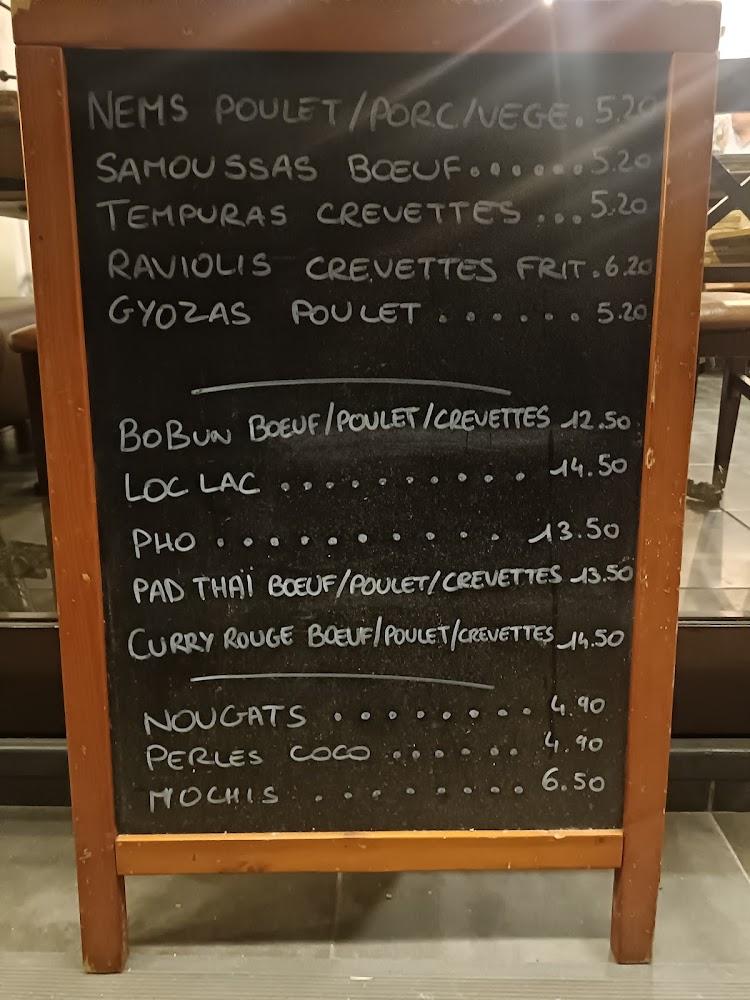 NEMS POULET/PORC/VEGE. 5.20
SAMOUSSAS BŒUF......5.20
TEMPURAS CREVETTES ...5.20
RAVIOLIS CREVETTES FRIT.6.20
GYOZAS POULET ...... 5.20
BOBUN BŒUF/POULET/CREVETTES 12.50
LOC LAC .......... 14.50
PHO .......... 13.50
PAD THAÏ BŒUF/POULET/CREVETTES 13.50
CURRY ROUGE BŒUF/POULET/CREVETTES 14.50
NOUGATS ........ 4.90
PERLES COCO ...... 4.90
MOCHIS ........ 6.50